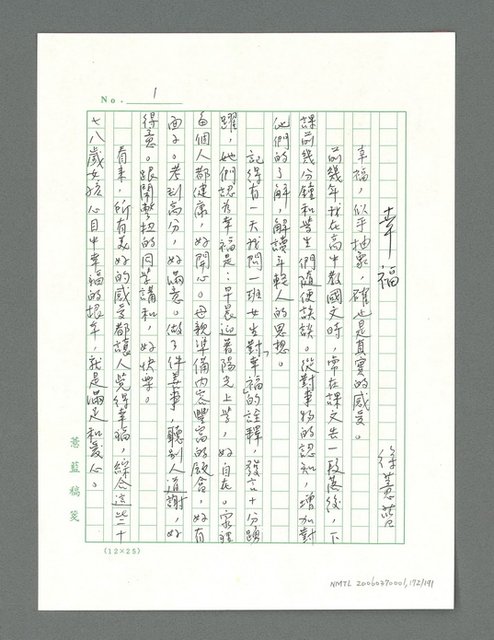 No. 1
幸福
徐薏藍
幸福，似乎抽象，確也是真實的感受。
前幾年我在高中教國文時，常在課文告一段落後，下
課前幾分鐘和學生們隨便談談。從對事物的認知，增加對
他們的了解，解讀年輕人的思想。
記得有一天我問一班女生對「幸福」的詮釋，發言十分踴
躍，她們認為幸福是：早晨迎著陽光上學，好自在。家裡
每個人都健康，好開心。母親準備內容豐富的飯盒，好有
面子。考到高分，好滿意。做了件善事，聽別人道謝，好
得意。跟鬧彆扭的同學講和，好快樂。
看來，所有美好的感受都讓人覺得幸福，綜合這些十
七八歲女孩心目中幸福的根本，就是滿足和愛心。
薏藍稿箋
(12×25)
NMTL 20060370001, 172/191